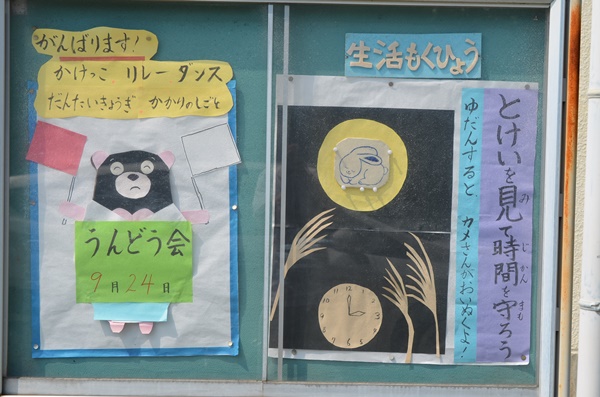 がんばります!
かけっこ リレー ダンス
だんたいきょうぎ かかりのしごと
うんどう会
9月24日
生活もくひょう
とけいを見て時間を守ろう
み じかん まも
ゆだんすると、カメさんがおいぬくよ!